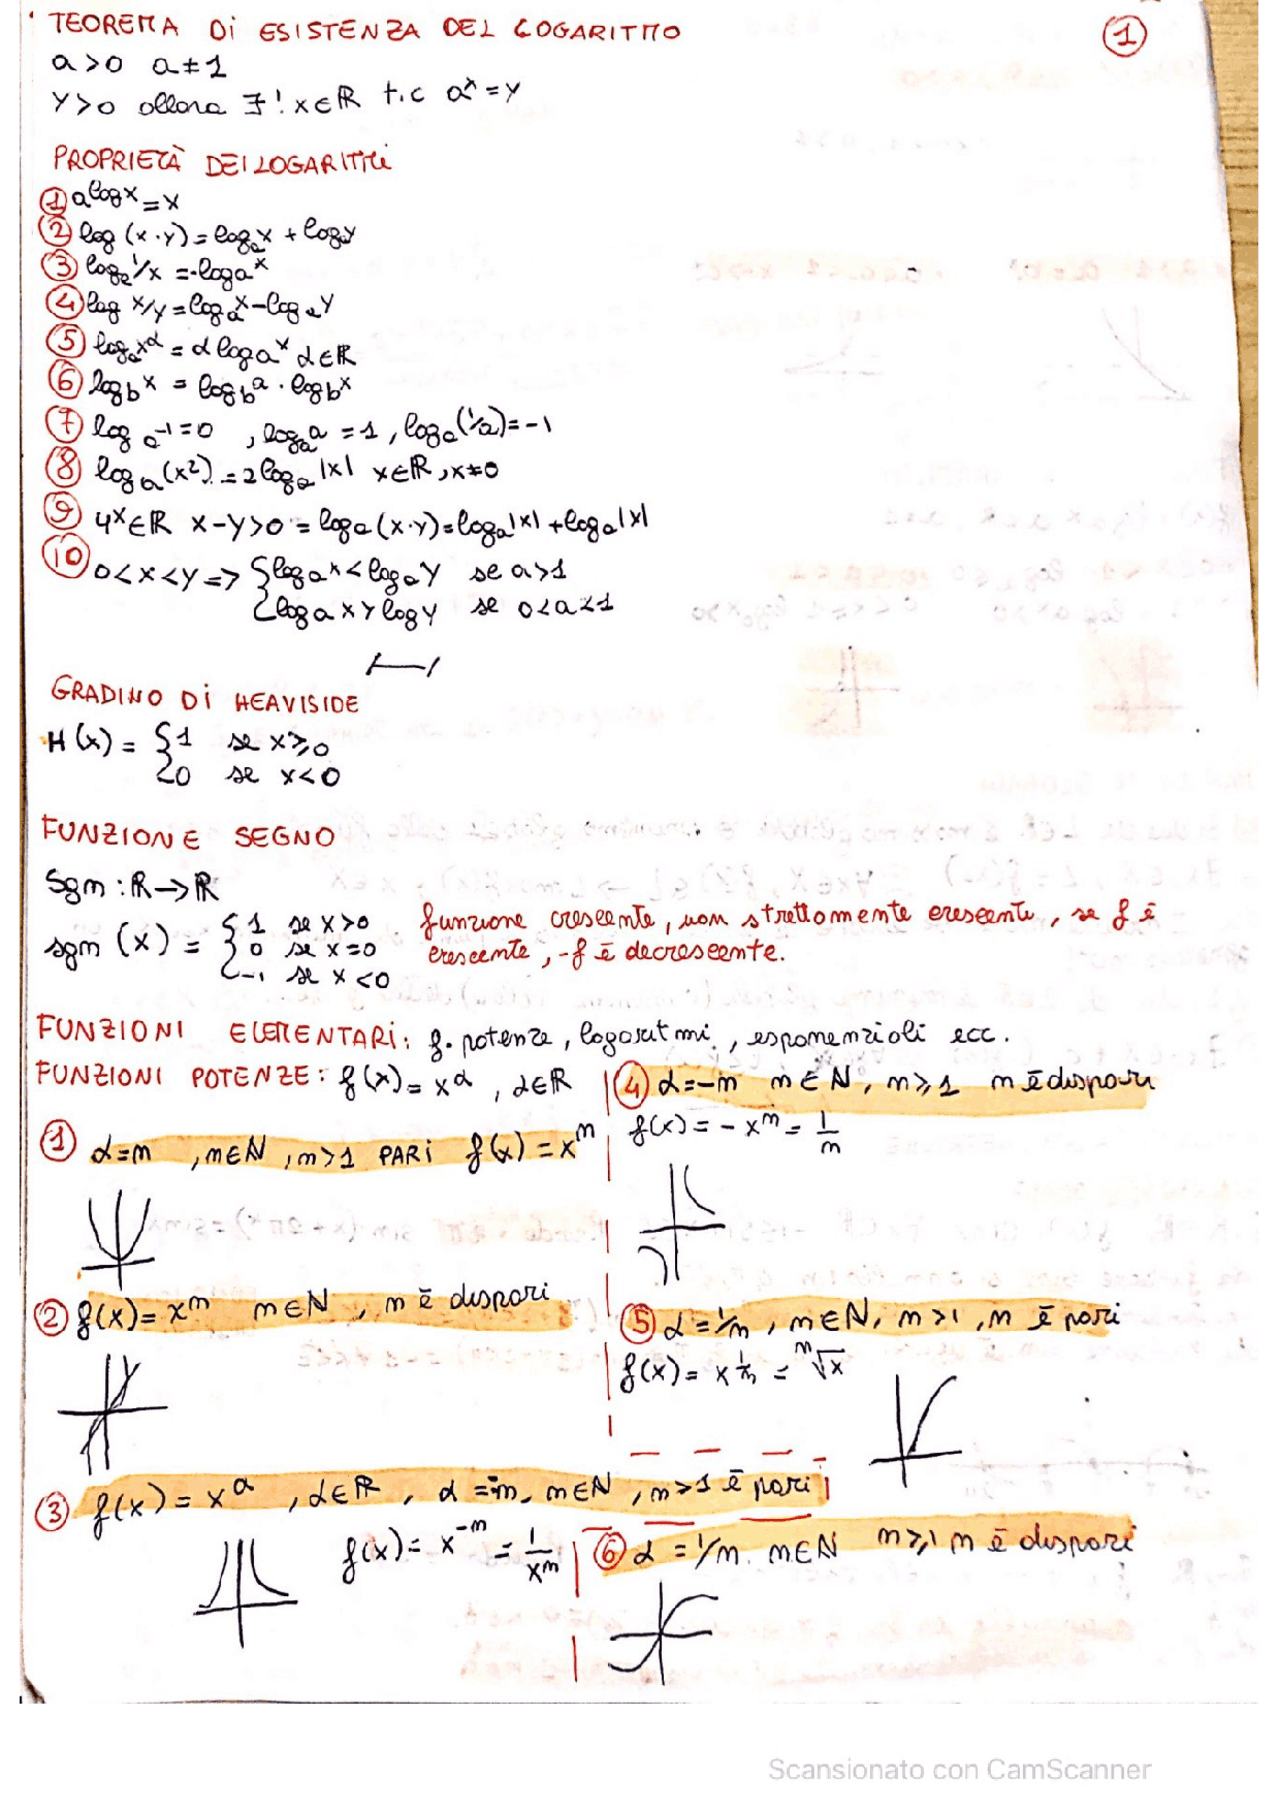 TEOREMA Di ESISTENZA DEL LOGARITMO
1
a>0 a≠1
y>0 allora ∃! x∈ℝ t.c aˣ=y
PROPRIETÀ DEI LOGARITMI
① a^log x = x
② log (x·y) = logₐx + logₐy
③ logₐ 1/x = -logₐx
④ log x/y = logₐx - logₐy
⑤ logₐx^α = α logₐx α∈ℝ
⑥ log_b x = log_b a · log_b x
⑦ logₐ-1=0 , logₐa = 1 , logₐ(1/a) = -1
⑧ logₐ(x²) = 2logₐ|x| x∈ℝ, x≠0
⑨ 4ˣ∈ℝ x-y>0 = logₐ(x·y)=logₐ|x| + logₐ|x|
⑩ 0<x<y => { logₐx < logₐy se a>1
logₐx > log y se 0<a<1
GRADINO Di HEAVISIDE
H(x) = { 1 se x≥0
0 se x<0
FUNZIONE SEGNO
Sgn : ℝ→ℝ
sgn (x) = { 1 se x>0
0 se x=0
-1 se x<0
funzione crescente, non strettamente crescente, se f è
crescente, -f è decrescente.
FUNZIONI ELEMENTARI: f. potenze, logaritmi, esponenziali ecc.
FUNZIONI POTENZE: f(x) = x^α , α∈ℝ
① α=n , n∈ℕ , n>1 PARI f(x) = xⁿ
② f(x) = xⁿ n∈ℕ , n è dispari
③ f(x) = x^α , α∈ℝ , α =-n, n∈ℕ , n>1 è pari
f(x) = x⁻ⁿ = 1/xⁿ
④ α=-n n∈ℕ, n≥1 n è dispari
f(x) = -xⁿ = 1/n
⑤ α = 1/n , n∈ℕ, n>1 , n è pari
f(x) = x 1/n = ⁿ√x
⑥ α = 1/n. n∈ℕ n≥1 n è dispari
Scansionato con CamScanner